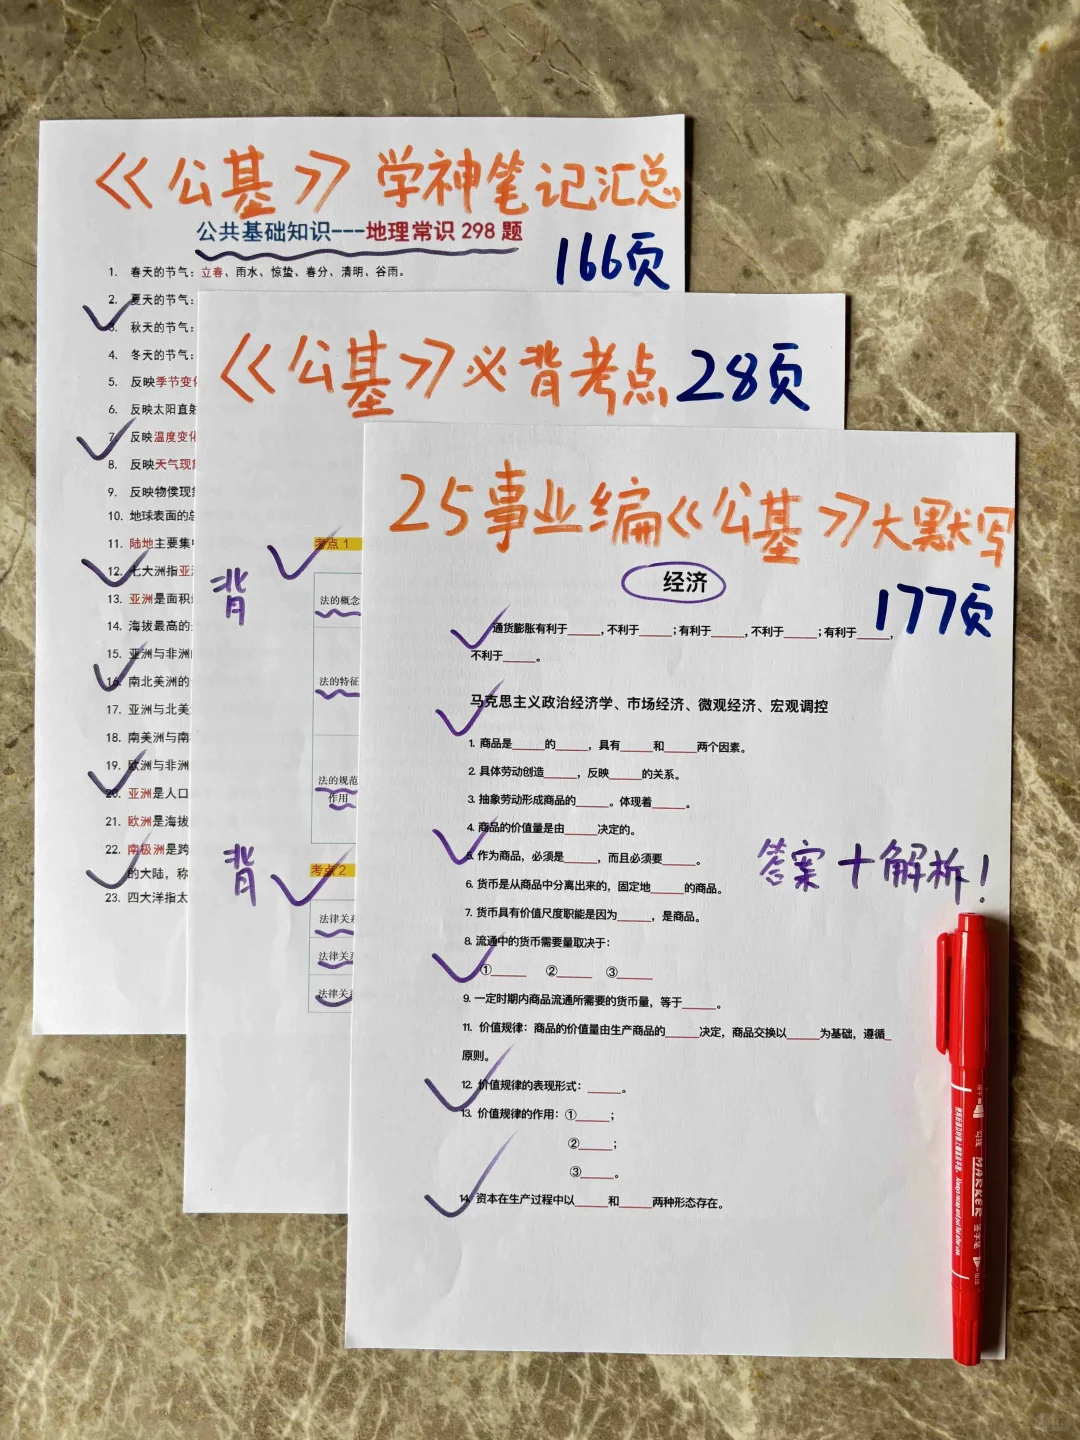 《公基》学神笔记汇总
公共基础知识---地理常识298题
166页
1. 春天的节气：立春、雨水、惊蛰、春分、清明、谷雨。
2. 夏天的节气：
3. 秋天的节气：
4. 冬天的节气：
5. 反映季节变化
6. 反映太阳直射
7. 反映温度变化
8. 反映天气现象
9. 反映物侯现象
10. 地球表面的总
11. 陆地主要集中
12. 七大洲指亚洲
13. 亚洲是面积最
14. 海拔最高的
15. 亚洲与非洲
16. 南北美洲的
17. 亚洲与北美
18. 南美洲与南
19. 欧洲与非洲
20. 亚洲是人口
21. 欧洲是海拔
22. 南极洲是跨
的大陆，称
23. 四大洋指太
《公基》必背考点28页
考点1
背
法的概念
法的特征
法的规范
作用
背
考点2
法律关系
法律关系
法律关系
25事业编《公基》大默写
经济
177页
通货膨胀有利于_____，不利于_____；有利于_____，不利于_____；有利于_____，
不利于_____。
马克思主义政治经济学、市场经济、微观经济、宏观调控
1. 商品是_____的_____，具有_____和_____两个因素。
2. 具体劳动创造_____，反映_____的关系。
3. 抽象劳动形成商品的_____。体现着_____。
4. 商品的价值量是由_____决定的。
5. 作为商品，必须是_____，而且必须要_____。
答案+解析！
6. 货币是从商品中分离出来的，固定地_____的商品。
7. 货币具有价值尺度职能是因为_____，是商品。
8. 流通中的货币需要量取决于：
①_____ ②_____ ③_____
9. 一定时期内商品流通所需要的货币量，等于_____。
11. 价值规律：商品的价值量由生产商品的_____决定，商品交换以_____为基础，遵循_
原则。
12. 价值规律的表现形式：_____。
13. 价值规律的作用：①_____；
②_____；
③_____。
14. 资本在生产过程中以_____和_____两种形态存在。
MARKER